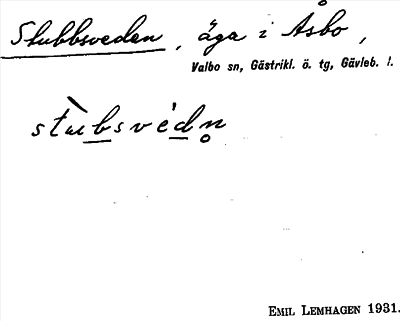 Stubbsveden, äga i Åsbo,
Valbo sn, Gästrikl. ö. tg, Gävleb. l.
stùbsvédn̥
EMIL LEMHAGEN 1931.